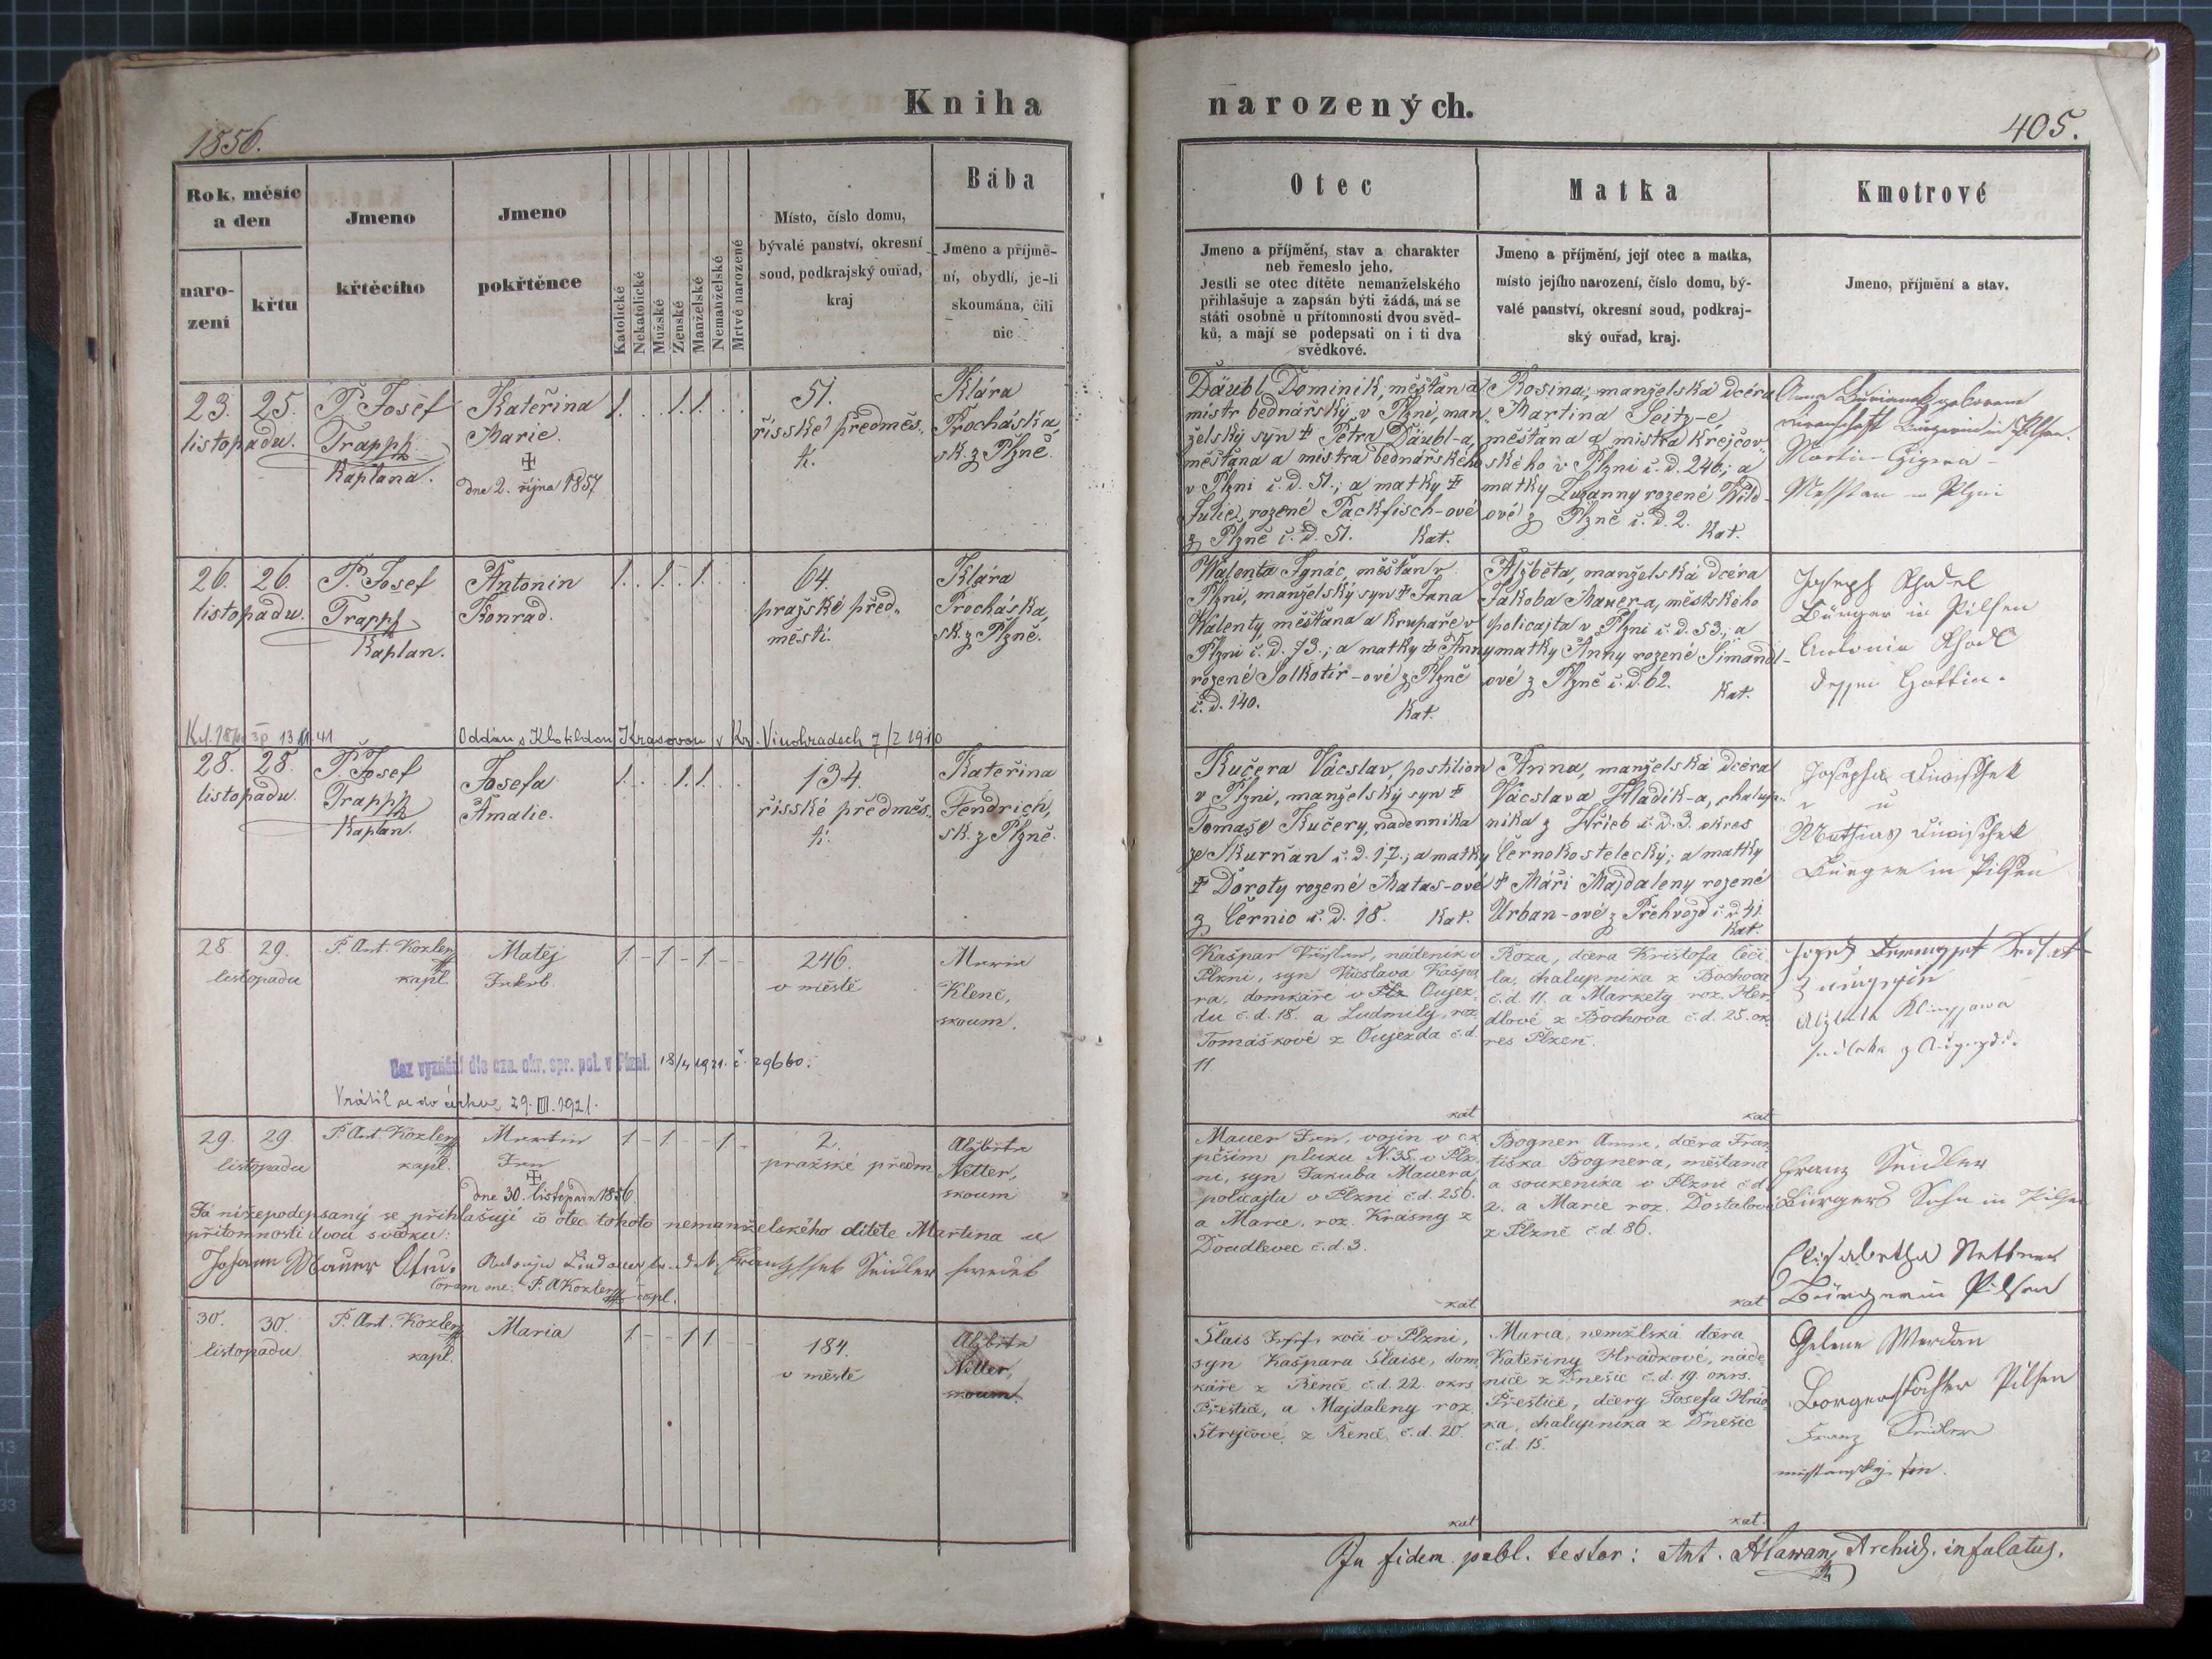 Kniha
narozených.
1856.
405.
Rok, měsíc
a den
naro-
zení
křtu
Jmeno
křtěcího
Jmeno
pokřtěnce
Katolické
Nekatolické
Mužské
Ženské
Manželské
Nemanželské
Mrtvě narozené
Místo, číslo domu,
bývalé panství, okresní
soud, podkrajský ouřad,
kraj
Bába
Jmeno a příjmě-
ní, obydlí, je-li
skoumána, čili
nic
Otec
Jmeno a příjmění, stav a charakter
neb řemeslo jeho.
Jestli se otec dítěte nemanželského
přihlašuje a zapsán býti žádá, má se
státi osobně u přítomnosti dvou svěd-
ků, a mají se podepsati on i ti dva
svědkové.
Matka
Jmeno a příjmění, její otec a matka,
místo jejího narození, číslo domu, bý-
valé panství, okresní soud, podkraj-
ský ouřad, kraj.
Kmotrové
Jmeno, příjmění a stav.
23. 25.
listopadu.
P. Josef
Trapph
Kaplana.
Kateřina
Marie.
✝
dne 2. října 1857
1. . . 1. 1. . .
51.
říšské předměs„
tí.
Klára
Procháska,
sk. z Plzně.
Däubl Dominik, měšťan a
mistr bednářský v Plzni, man„
želský syn ✝ Petra Däubl-a,
měšťana a mistra bednářského
v Plzni č. d. 51.; a matky ✝
Julie, rozené Packfisch-ové
z Plzně č. d. 51. Kat.
Rosina, manželská dcéra
Martina Seitz-e,
měšťana a mistra krejčov„
ského v Plzni č. d. 246.; a
matky Zuzanny rozené Wild-
ové z Plzně č. d. 2.
Kat.
Martin
26. 26.
listopadu.
P. Josef
Trapph
Kaplan.
Antonín
Konrad.
1. . 1. . 1. . .
64.
pražské před„
městí.
Klára
Procháska,
sk. z Plzně.
Walenta Ignác, měšťan v
Plzni, manželský syn ✝ Jana
Walenty, měšťana a krupaře v
Plzni č. d. 73.; a matky ✝ Anny
rozené Solkotír-ové z Plzně
č. d. 140.
Kat.
Alžběta, manželská dcéra
Jakoba Mauer-a, městského
policajta v Plzni č. d. 53.; a
matky Anny rozené Simandl-
ové z Plzně č. d. 62.
Kat.
Joseph
Bürger in Pilsen
Antonia
dessen Gattin.
13 41
Oddán s Klotildou Krasovou v Kr. Vinohradech 7/2 1910
28. 28.
listopadu.
P. Josef
Trapph
Kaplan.
Josefa
Amalie.
1. . . 1. 1. . .
134.
říšské předměs„
tí.
Kateřina
Fendrich,
sk. z Plzně.
Kučera Václav, postilion
v Plzni, manželský syn ✝
Tomaše Kučery, nadenníka
ze Skurňan č. d. 17.; a matky
✝ Doroty rozené Matas-ové
z Černic č. d. 18. Kat.
Anna, manželská dcéra
Václava Hladík-a, chalup„
níka z Hřieb č. d. 3. okres
Černokostelecký; a matky
✝ Máři Majdaleny rozené
Urban-ové z Přehvozd č. d. 41.
Kat.
Josepha
Mathias
Bürger in Pilsen
28. 29.
listopadu
P. Ant. Kozler
kapl.
Matěj
Jakob.
1 - 1 - 1 - -
246.
v městě
Marie
Klenč,
skoum.
Kašpar Václav, nádeník v
Plzni, syn Václava Kašpa
ra, domkáře v Plz Oujez„
du č. d. 18. a Ludmily, roz.
Tomáškové z Oujezda č. d.
11
kat
Roza, dcera Krištofa Čeči
la, chalupníka z Bochova
č. d. 11. a Markety roz. Her„
dlové z Bochova č. d. 25. ok
res Plzeň.
kat
Bez vyznání dle ozn. okr. spr. pol. v Plzni. 18/4 1921. č. 29660.
Vrátil se do církve 29. III. 1921.
29. 29.
listopadu
P. Ant. Kozler
kapl.
Martin
Jan
✝
dne 30. listopadu 1856
1 - 1 - - 1 -
2.
pražské předm
Alžběta
Netter,
skoum
Já nížepodepsaný se přihlašuji co otec tohoto nemanželského dítěte Martina u
přítomnosti dvou svědků:
Johann Mauer
coram me: P. A Kozler capl.
Mauer Jan, vojín v c. k.
pěším pluku N. 35. v Plz„
ni, syn Jakuba Mauera
policajta v Plzni č. d. 256.
a Marie, roz. Krásny z
Doudlevec č. d. 3.
kat
Bogner Anna, dcera Fran„
tiška Bognera, měšťana
a soukeníka v Plzni č. d.
2. a Marie roz. Dostalové
z Plzně č. d. 86.
kat
Franz Seidler
Bürgers Sohn in Pilsen
Elisabetha Nettner
Bürgerin Pilsen
30. 30.
listopadu
P. Ant. Kozler
kapl.
Maria
1 - - 1 1 - -
184.
v městě
Alžběta
Netter,
skoum.
Šlais Josef, kočí v Plzni,
syn Kašpara Šlaise, dom„
káře z Řenče č. d. 22. okrs
Přeštic, a Majdaleny roz.
Strejcové z Řenč. č. d. 20.
kat
Maria, nemžlská dcera
Kateřiny Hrádkové, náde„
nice z Dnešic č. d. 19. okrs.
Přeštice, dcery Josefa Hrád„
ka, chalupníka z Dnešic
č. d. 15.
kat.
Helena
Pilsen
Franz Seidler
In fidem publ. testor: Ant. Hlawan, Archid. infulatus.